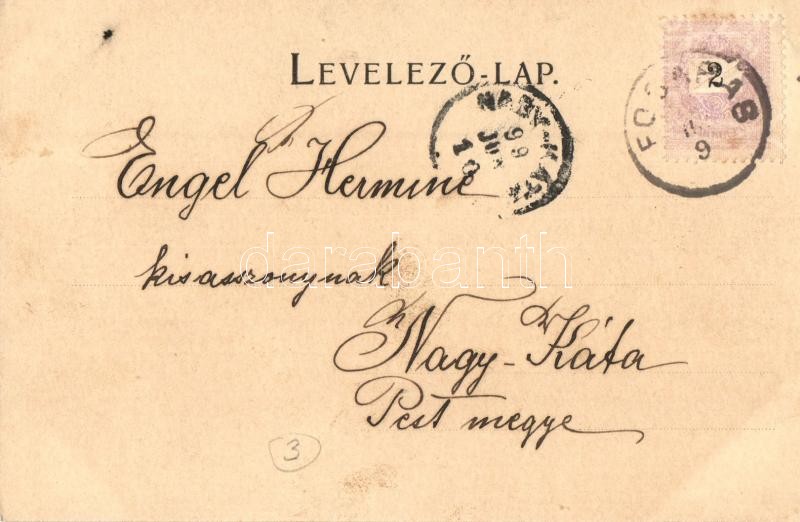 LEVELEZŐ-LAP.
2
NAGY-KÁTA
99
JUN
10
9
Engel Hermine
kisasszonynak
Nagy-Káta
Pest megye
3
darabanth